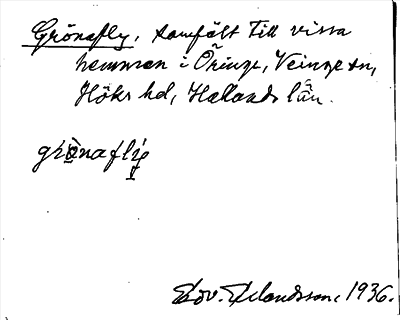 Grönafly, samfält till vissa
hemman i Öringe, Veinge sn,
Höks hd, Hallands län.
grònaflị̀
Edv. Erlandsson, 1936.